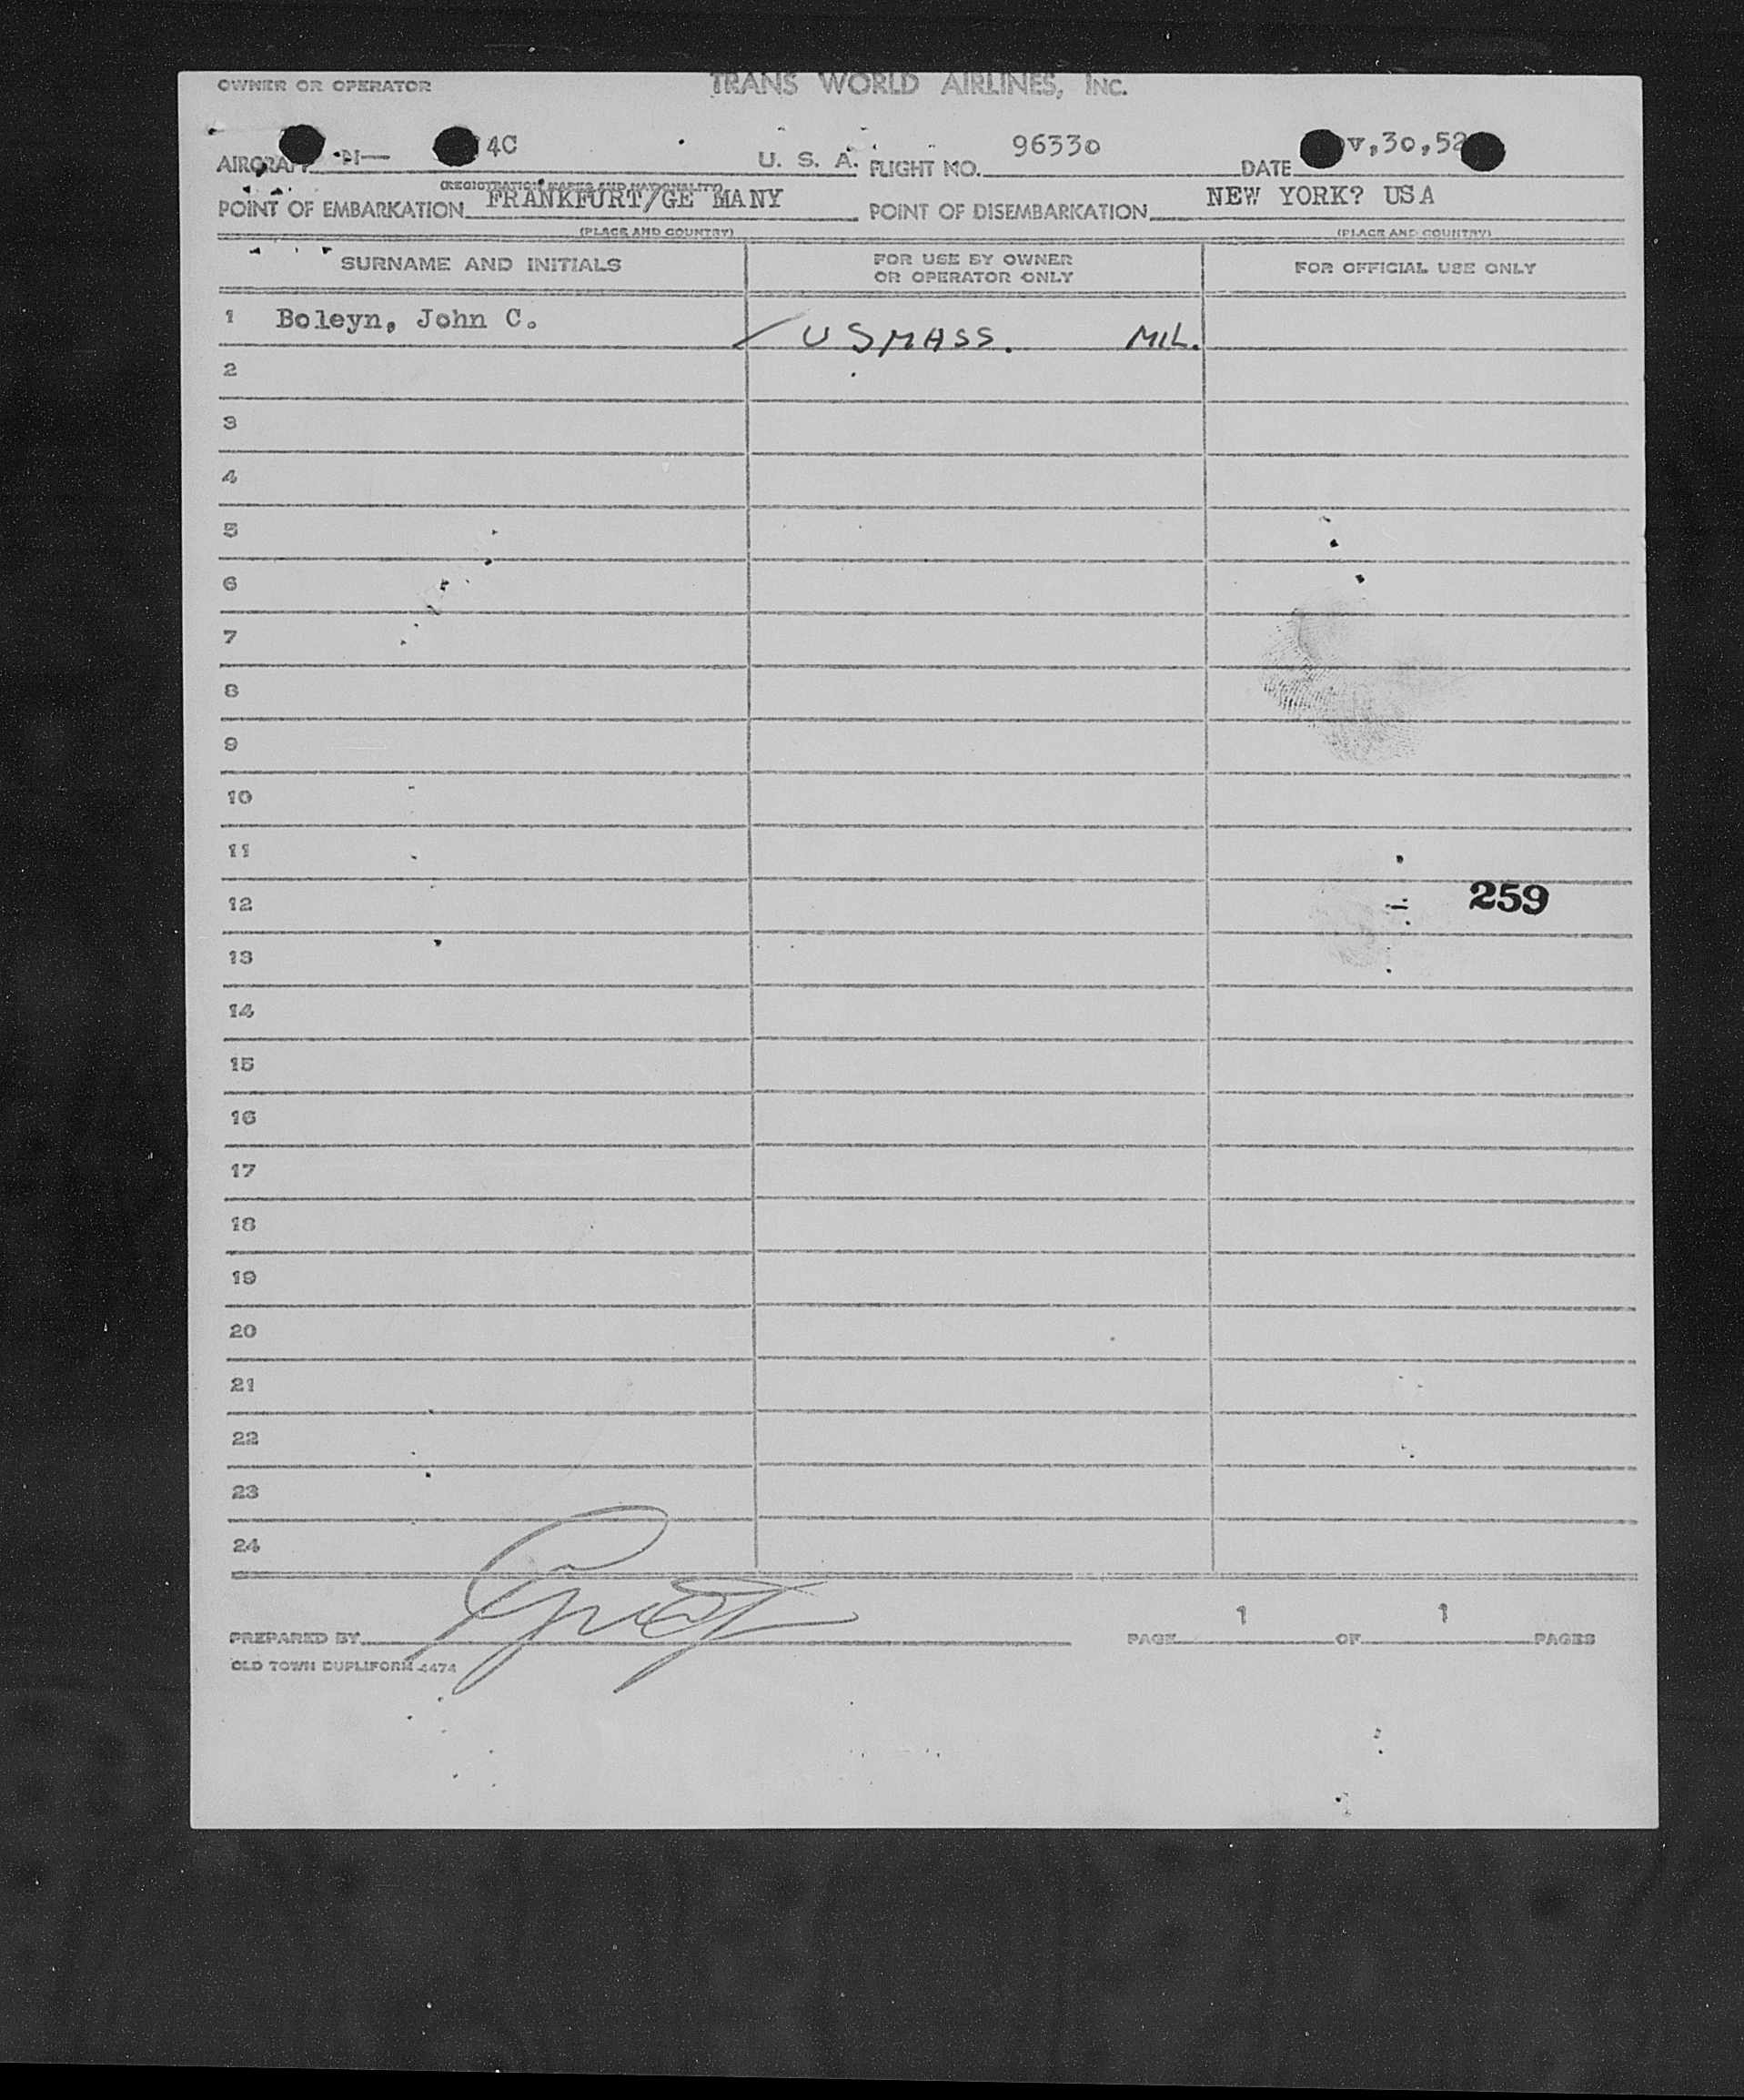 OWNER OR OPERATOR TRANS WORLD AIRLINES, INC.
AIRCRAFT N— 4C U. S. A. FLIGHT NO. 96330 DATE v,30,52
(REGISTRATION MARKS AND NATIONALITY)
POINT OF EMBARKATION FRANKFURT/GE MANY POINT OF DISEMBARKATION NEW YORK? USA
(PLACE AND COUNTRY) (PLACE AND COUNTRY)
SURNAME AND INITIALS FOR USE BY OWNER OR OPERATOR ONLY FOR OFFICIAL USE ONLY
1 Boleyn, John C. USMASS. MIL.
2
3
4
5
6
7
8
9
10
11
12 259
13
14
15
16
17
18
19
20
21
22
23
24
PREPARED BY PAGE 1 OF 1 PAGES
OLD TOWN DUPLIFORM 4474